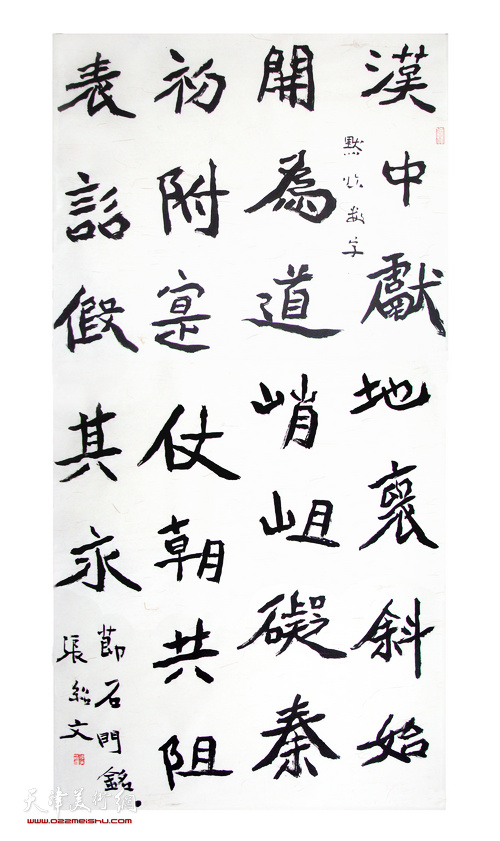 漢中獻地褒斜始
開為道峭岨礙秦
初附寔仗朝共阻
表詔假其永
節石門銘
張紹文
天津美术网
www.022meishu.com